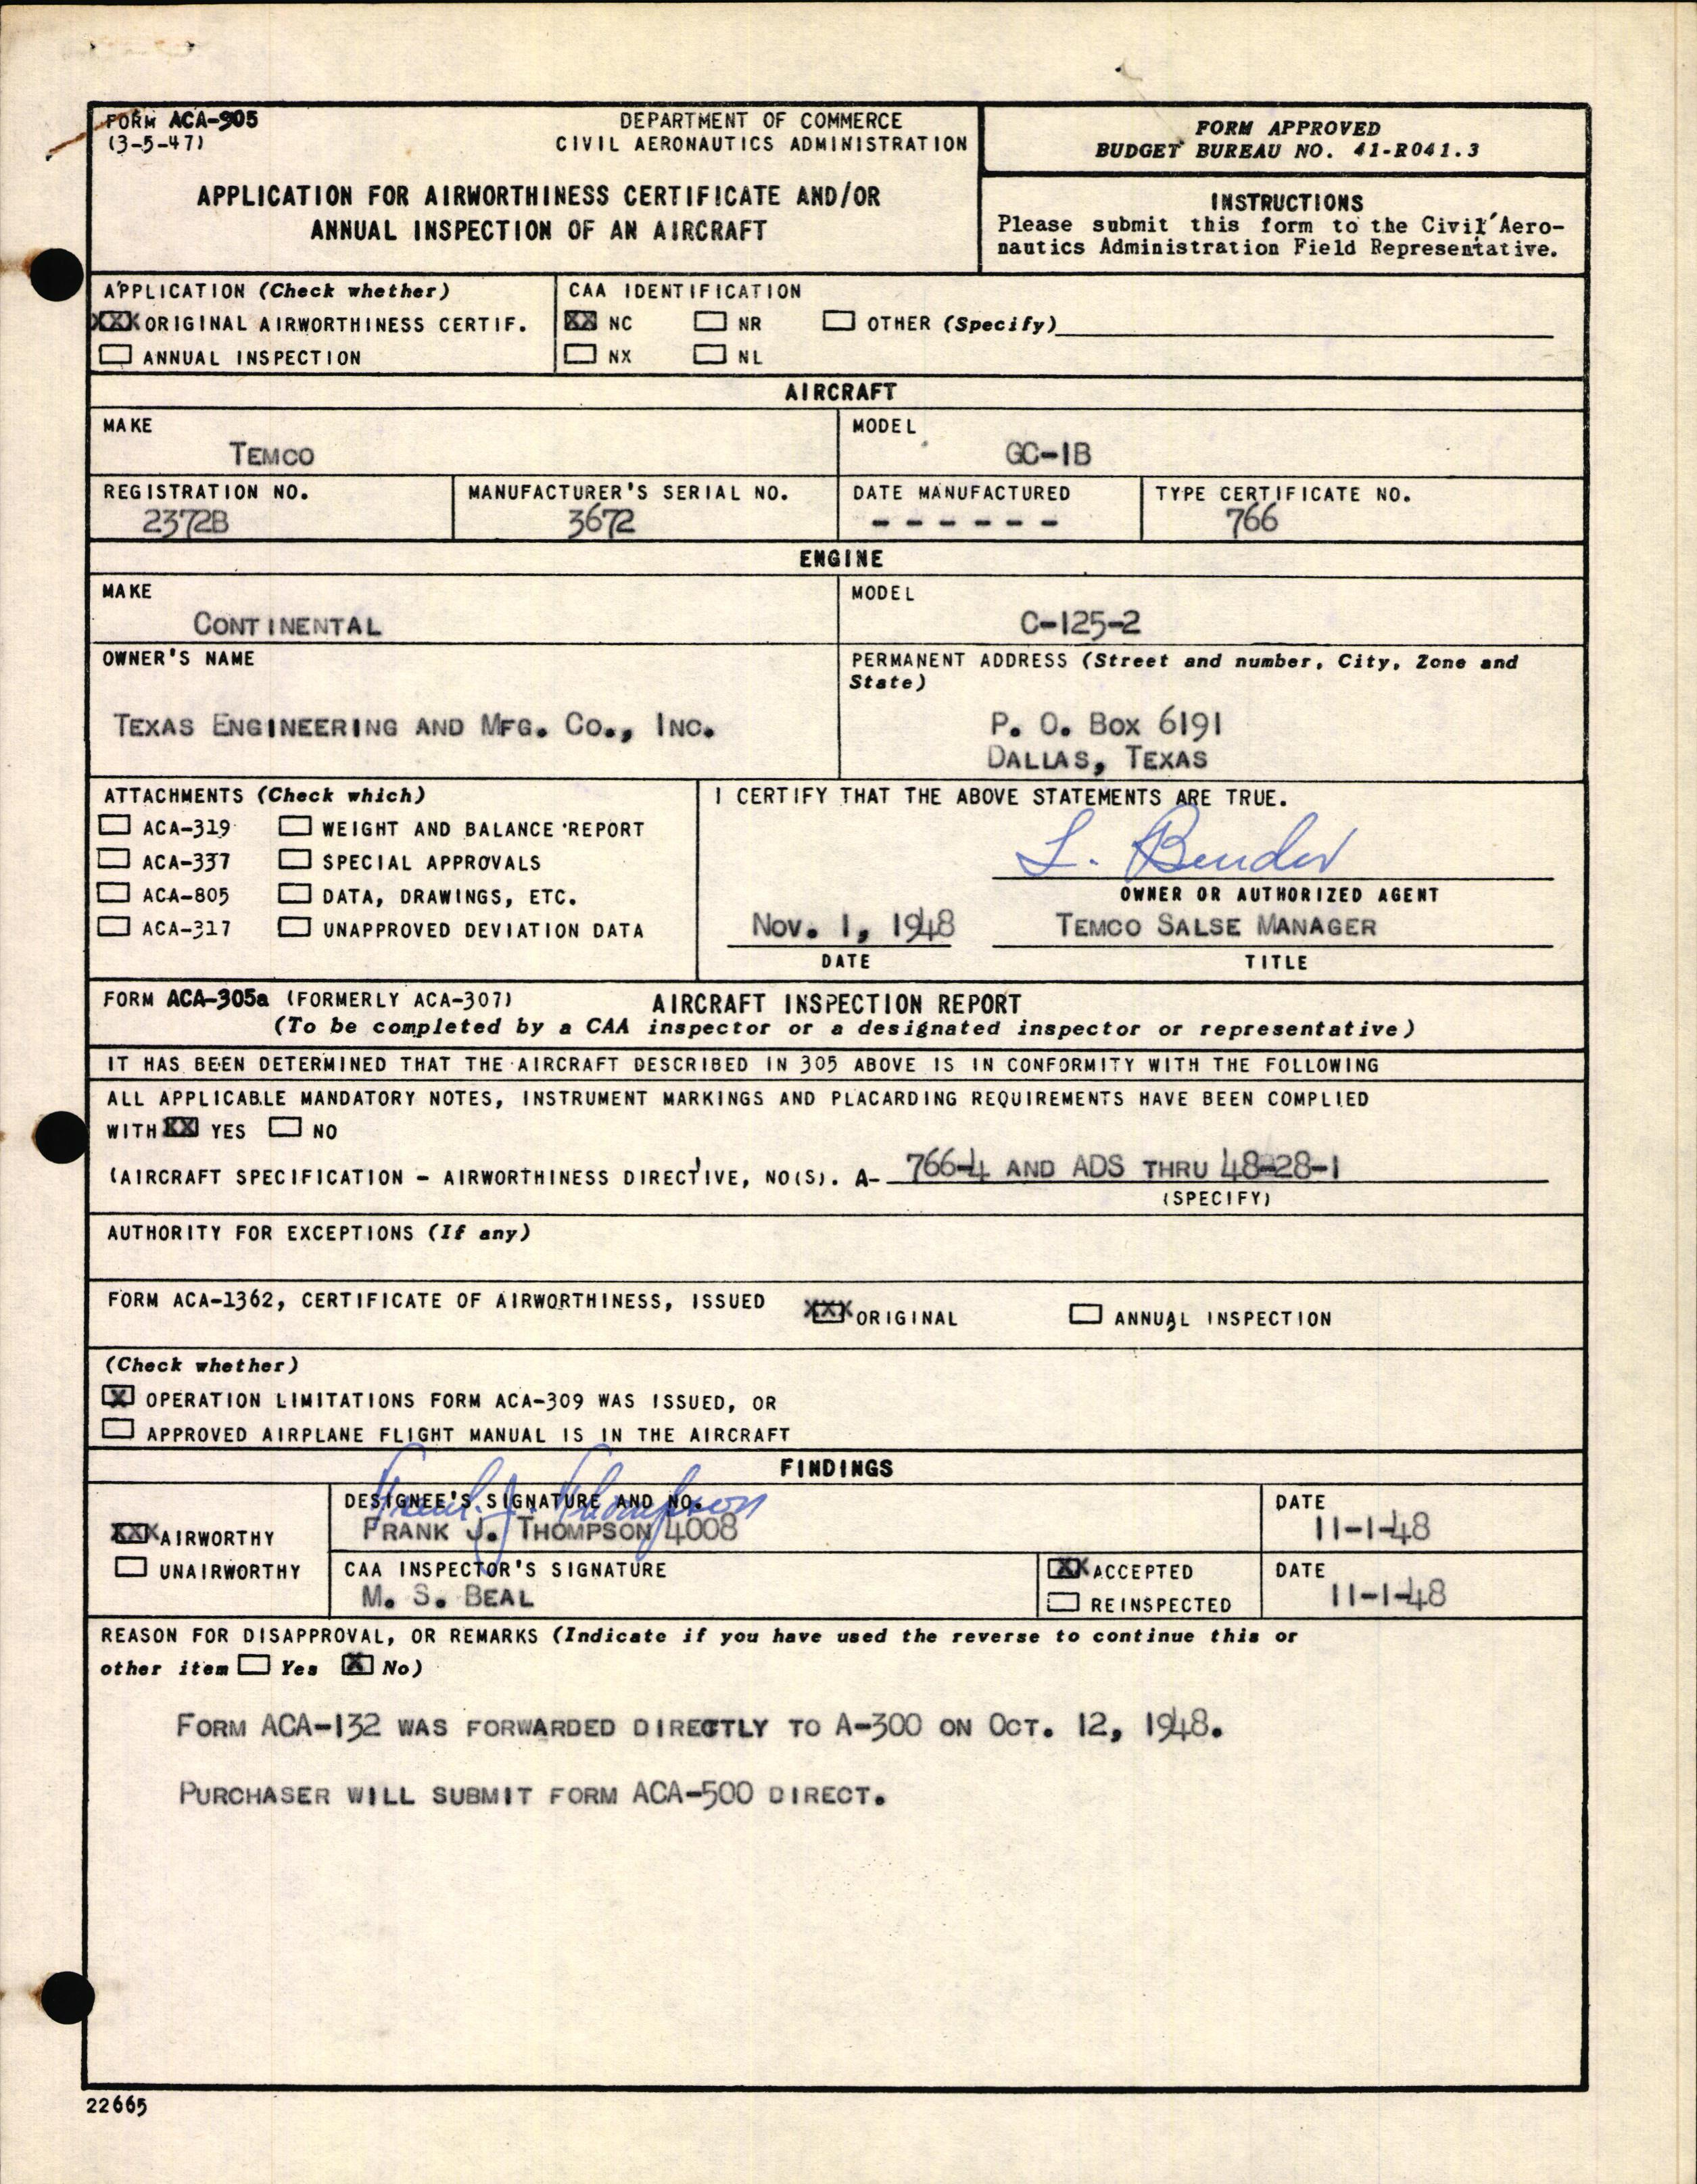 FORM ACA-305
(3-5-47)
DEPARTMENT OF COMMERCE
CIVIL AERONAUTICS ADMINISTRATION
APPLICATION FOR AIRWORTHINESS CERTIFICATE AND/OR
ANNUAL INSPECTION OF AN AIRCRAFT
FORM APPROVED
BUDGET BUREAU NO. 41-R041.3
INSTRUCTIONS
Please submit this form to the Civil Aero-
nautics Administration Field Representative.
APPLICATION (Check whether)
XXX ORIGINAL AIRWORTHINESS CERTIF.
ANNUAL INSPECTION
CAA IDENTIFICATION
XX NC NR OTHER (Specify)
NX NL
AIRCRAFT
MAKE
TEMCO
MODEL
GC-1B
REGISTRATION NO.
2372B
MANUFACTURER'S SERIAL NO.
3672
DATE MANUFACTURED
- - - - - -
TYPE CERTIFICATE NO.
766
ENGINE
MAKE
CONTINENTAL
MODEL
C-125-2
OWNER'S NAME
TEXAS ENGINEERING AND MFG. CO., INC.
PERMANENT ADDRESS (Street and number, City, Zone and
State)
P. O. BOX 6191
DALLAS, TEXAS
ATTACHMENTS (Check which)
ACA-319 WEIGHT AND BALANCE REPORT
ACA-337 SPECIAL APPROVALS
ACA-805 DATA, DRAWINGS, ETC.
ACA-317 UNAPPROVED DEVIATION DATA
I CERTIFY THAT THE ABOVE STATEMENTS ARE TRUE.
L. Bender
OWNER OR AUTHORIZED AGENT
NOV. 1, 1948 TEMCO SALSE MANAGER
DATE TITLE
FORM ACA-305a (FORMERLY ACA-307) AIRCRAFT INSPECTION REPORT
(To be completed by a CAA inspector or a designated inspector or representative)
IT HAS BEEN DETERMINED THAT THE AIRCRAFT DESCRIBED IN 305 ABOVE IS IN CONFORMITY WITH THE FOLLOWING
ALL APPLICABLE MANDATORY NOTES, INSTRUMENT MARKINGS AND PLACARDING REQUIREMENTS HAVE BEEN COMPLIED
WITH XX YES NO
(AIRCRAFT SPECIFICATION - AIRWORTHINESS DIRECTIVE, NO(S). A- 766-4 AND ADS THRU 48-28-1
(SPECIFY)
AUTHORITY FOR EXCEPTIONS (If any)
FORM ACA-1362, CERTIFICATE OF AIRWORTHINESS, ISSUED XXX ORIGINAL ANNUAL INSPECTION
(Check whether)
X OPERATION LIMITATIONS FORM ACA-309 WAS ISSUED, OR
APPROVED AIRPLANE FLIGHT MANUAL IS IN THE AIRCRAFT
FINDINGS
XXX AIRWORTHY
UNAIRWORTHY
DESIGNEE'S SIGNATURE AND NO.
Frank J. Thompson
FRANK J. THOMPSON 4008
DATE
11-1-48
CAA INSPECTOR'S SIGNATURE
M. S. BEAL
XX ACCEPTED
REINSPECTED
DATE
11-1-48
REASON FOR DISAPPROVAL, OR REMARKS (Indicate if you have used the reverse to continue this or
other item Yes X No)
FORM ACA-132 WAS FORWARDED DIRECTLY TO A-300 ON OCT. 12, 1948.
PURCHASER WILL SUBMIT FORM ACA-500 DIRECT.
22665